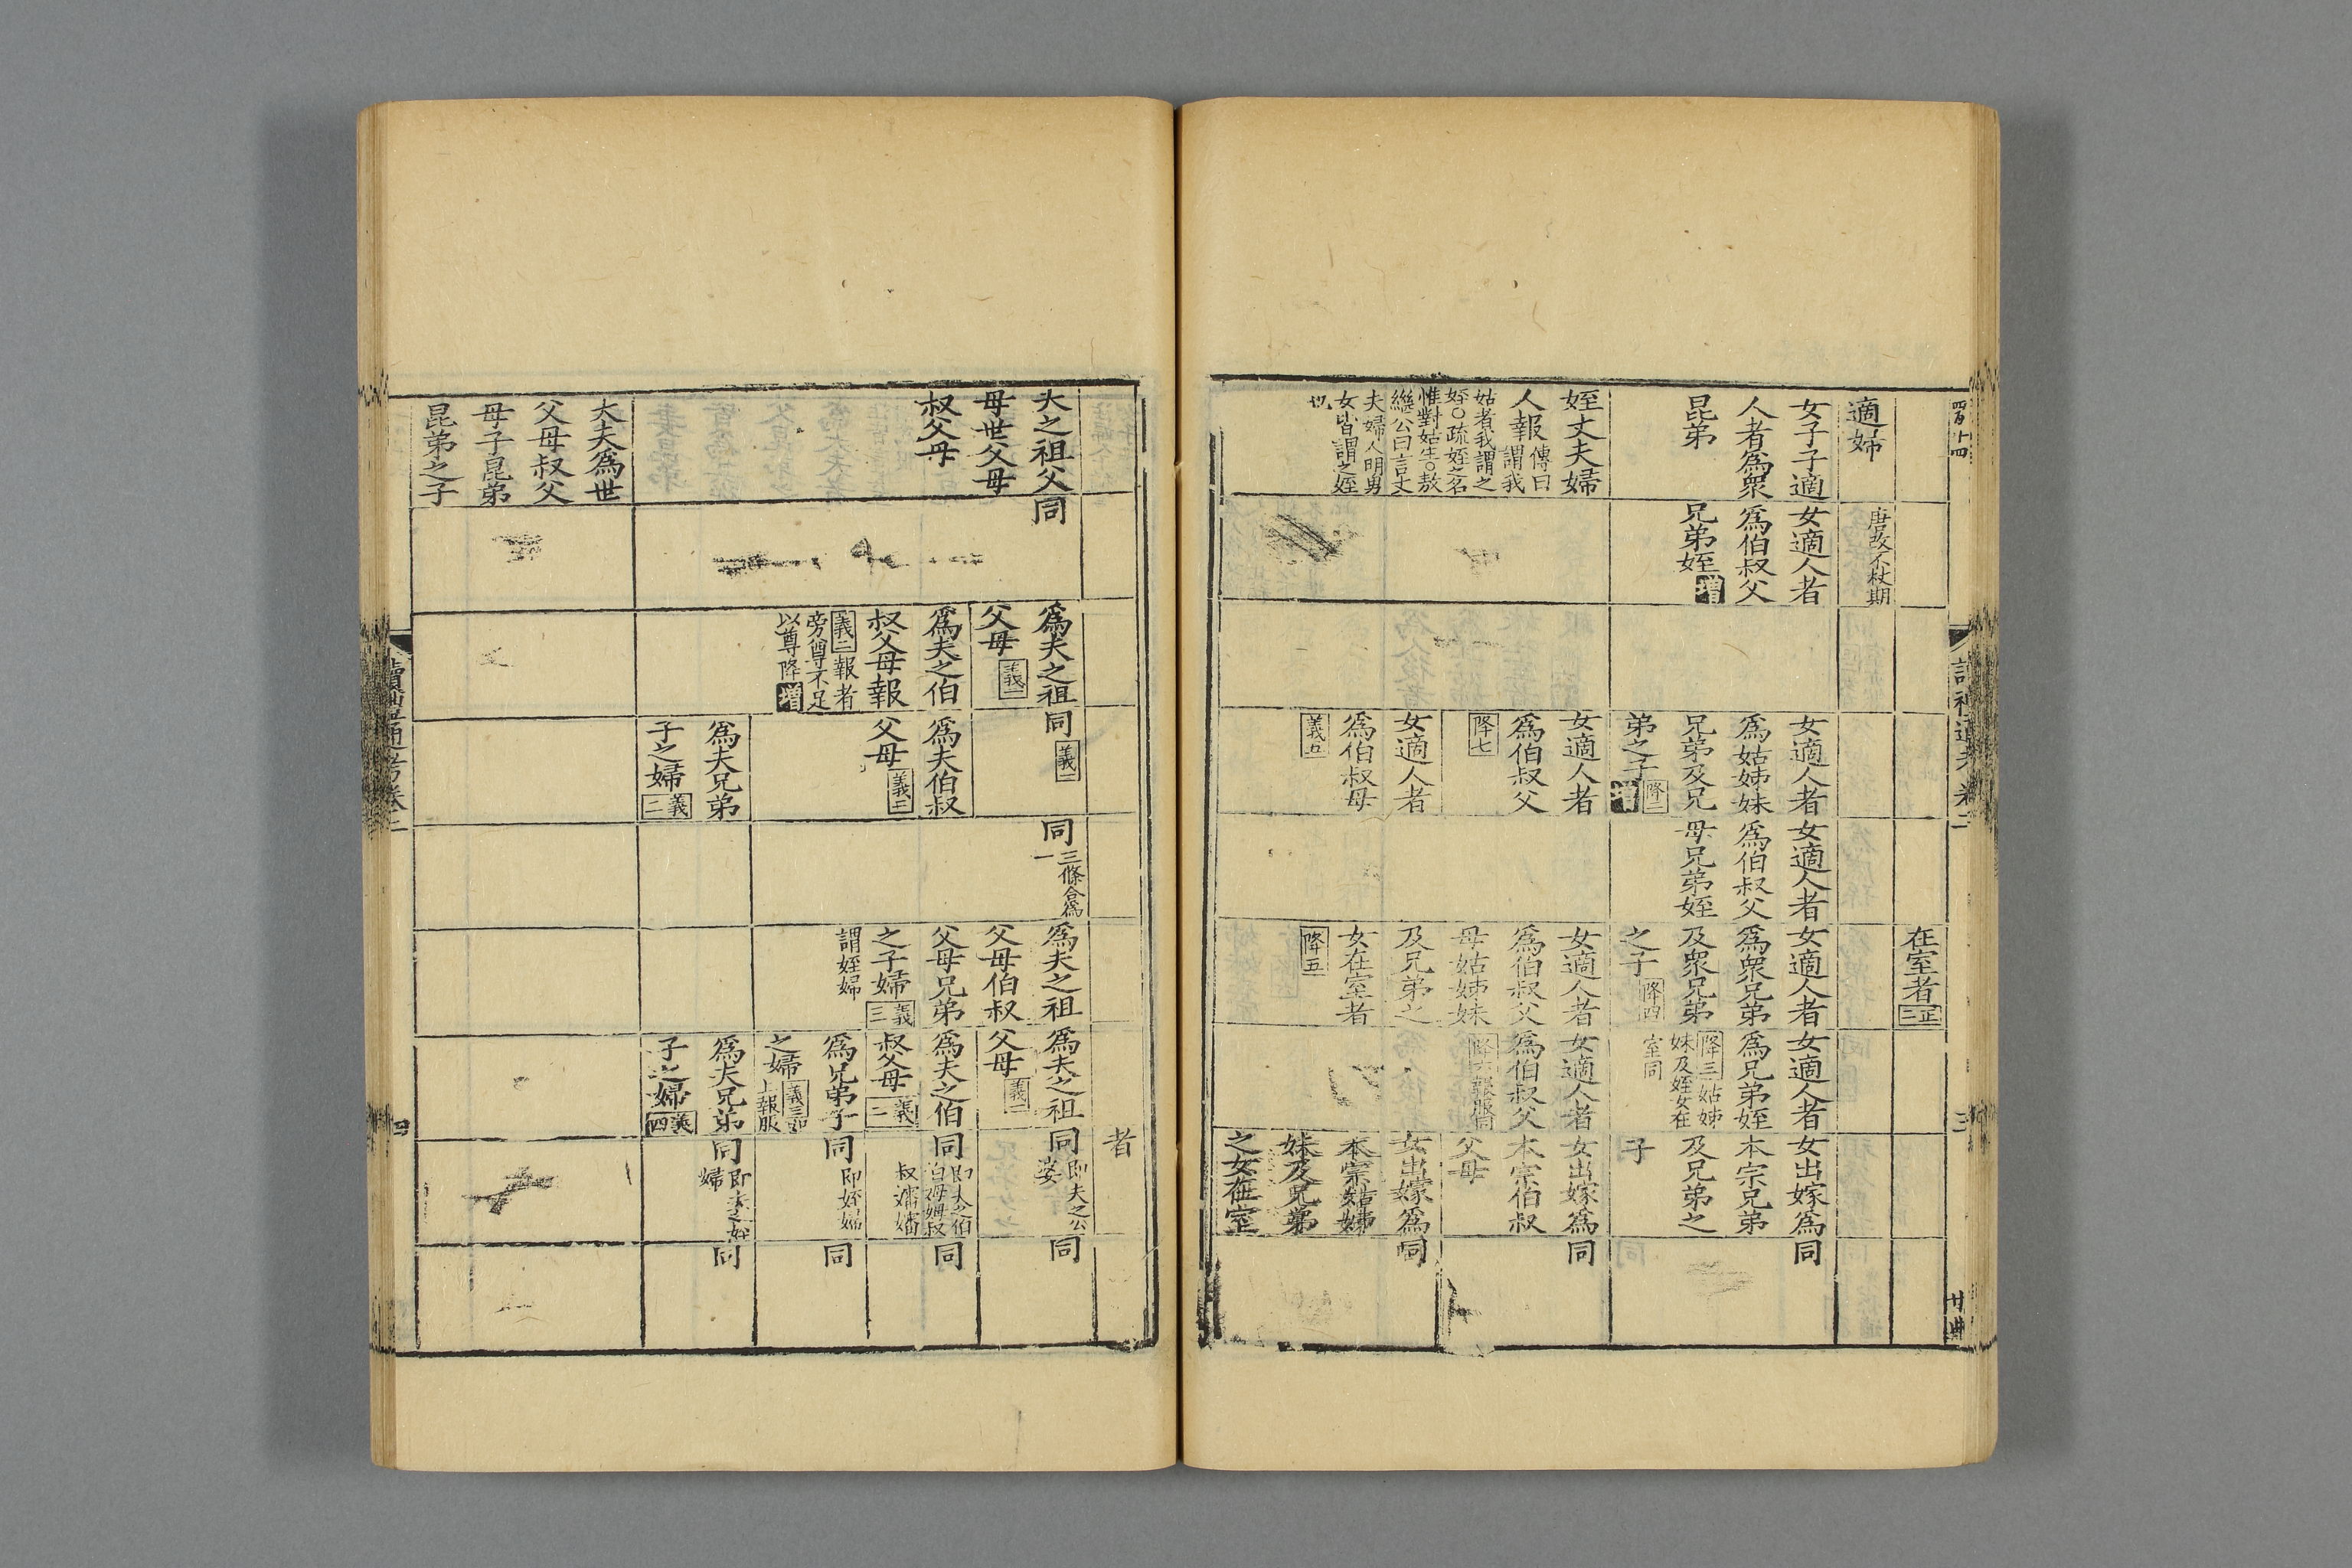 適婦
女子子適
人者為衆
昆弟
姪丈夫婦
人報
傳曰
謂我
姑者我謂之
姪○疏姪之名
惟對姑生○敖
繼公曰言丈
夫婦人明男
女皆謂之姪
也
唐改不杖期
女適人者
為伯叔父
兄弟姪增
女適人者
為姑姊妹
兄弟及兄
弟之子
降二
增
女適人者
為伯叔父
降七
女適人者
為伯叔母
義五
女適人者
為伯叔父
母兄弟姪
在室者
正二
女適人者
為衆兄弟
及衆兄弟
之子
降四
女適人者
為伯叔父
母姑姊妹
及兄弟之
女在室者
降五
女適人者
為兄弟姪
降三姑姊
妹及姪女在
室同
女適人者
為伯叔父
女出嫁為
本宗兄弟
及兄弟之
子
女出嫁為
本宗伯叔
父母
女出嫁為
本宗姑姊
妹及兄弟
之女在室
同
同
同
讀禮通考卷二
夫之祖父
母世父母
叔父母
大夫為世
父母叔父
母子昆弟
昆弟之子
同
為夫之祖
父母
義一
為夫之伯
叔父母報
義二報者
旁尊不足
以尊降增
同
義一
為夫伯叔
父母
義三
為夫兄弟
子之婦
義二
同
三條合為
一
為夫之祖
父母伯叔
父母兄弟
之子婦
義三
謂姪婦
為夫之祖
父母
義一
為夫之伯
叔父母
義二
為兄弟子
之婦
義三即
上報服
為夫兄弟
子之婦
義四
者
同
即夫之公
婆
同
即夫之伯
伯母姆叔
叔嬸嬸
同
即姪婦
同
即夫之姪
婦
同
同
同
同
讀禮通考卷二
四